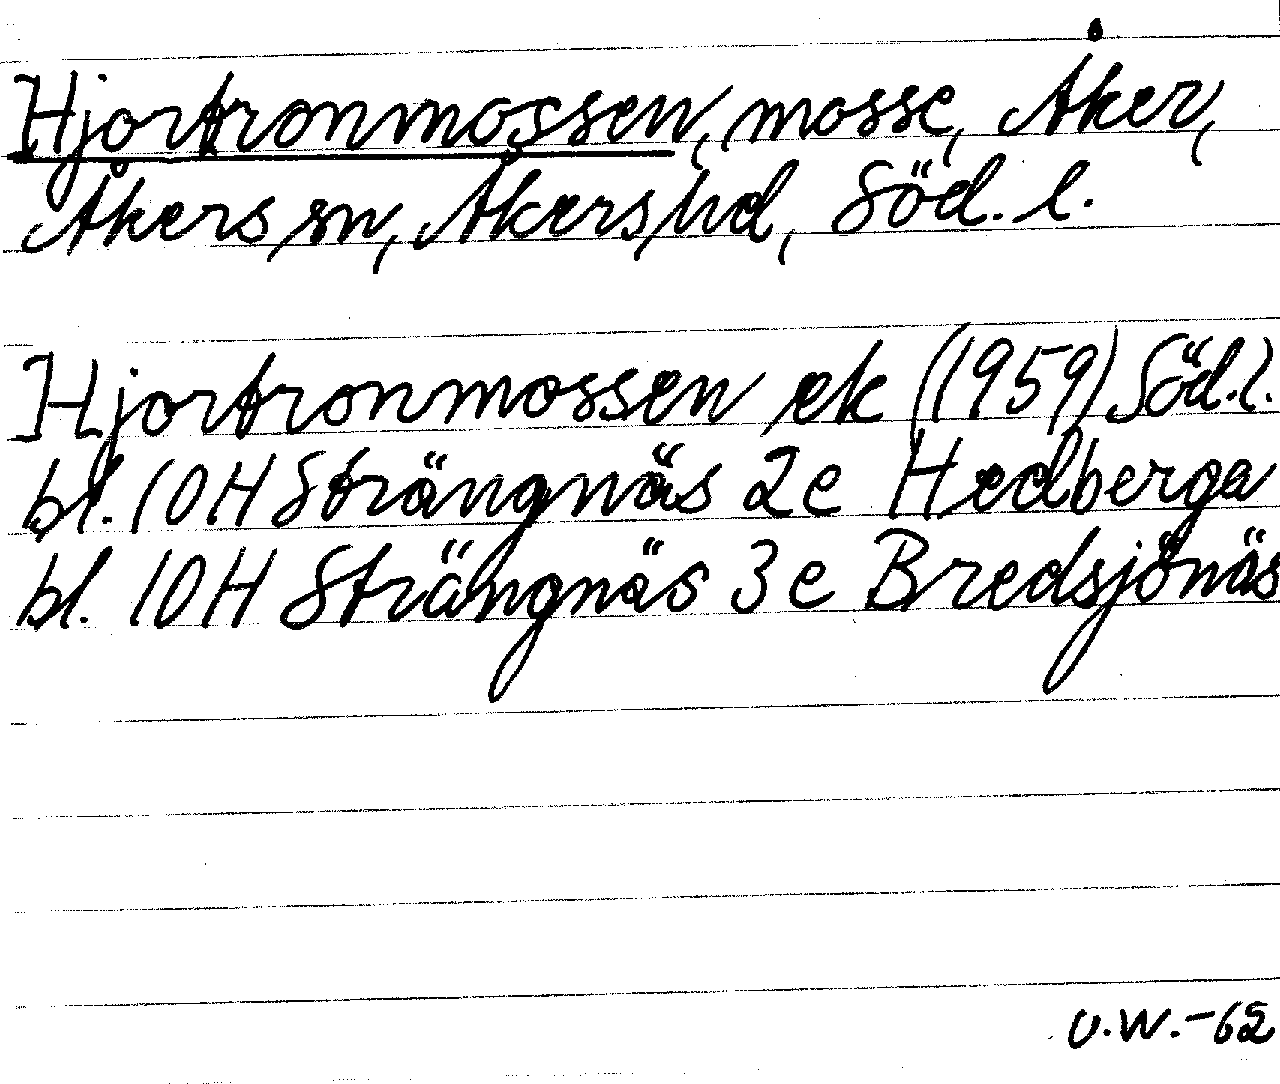 Hjortronmossen, mosse, Åker,
Åkers sn, Åkers hd, Söd. l.
Hjortronmossen ek (1959) Söd. l.
bl. 10H Strängnäs 2e Hedberga
bl. 10H Strängnäs 3e Bredsjönäs
U.W.-62